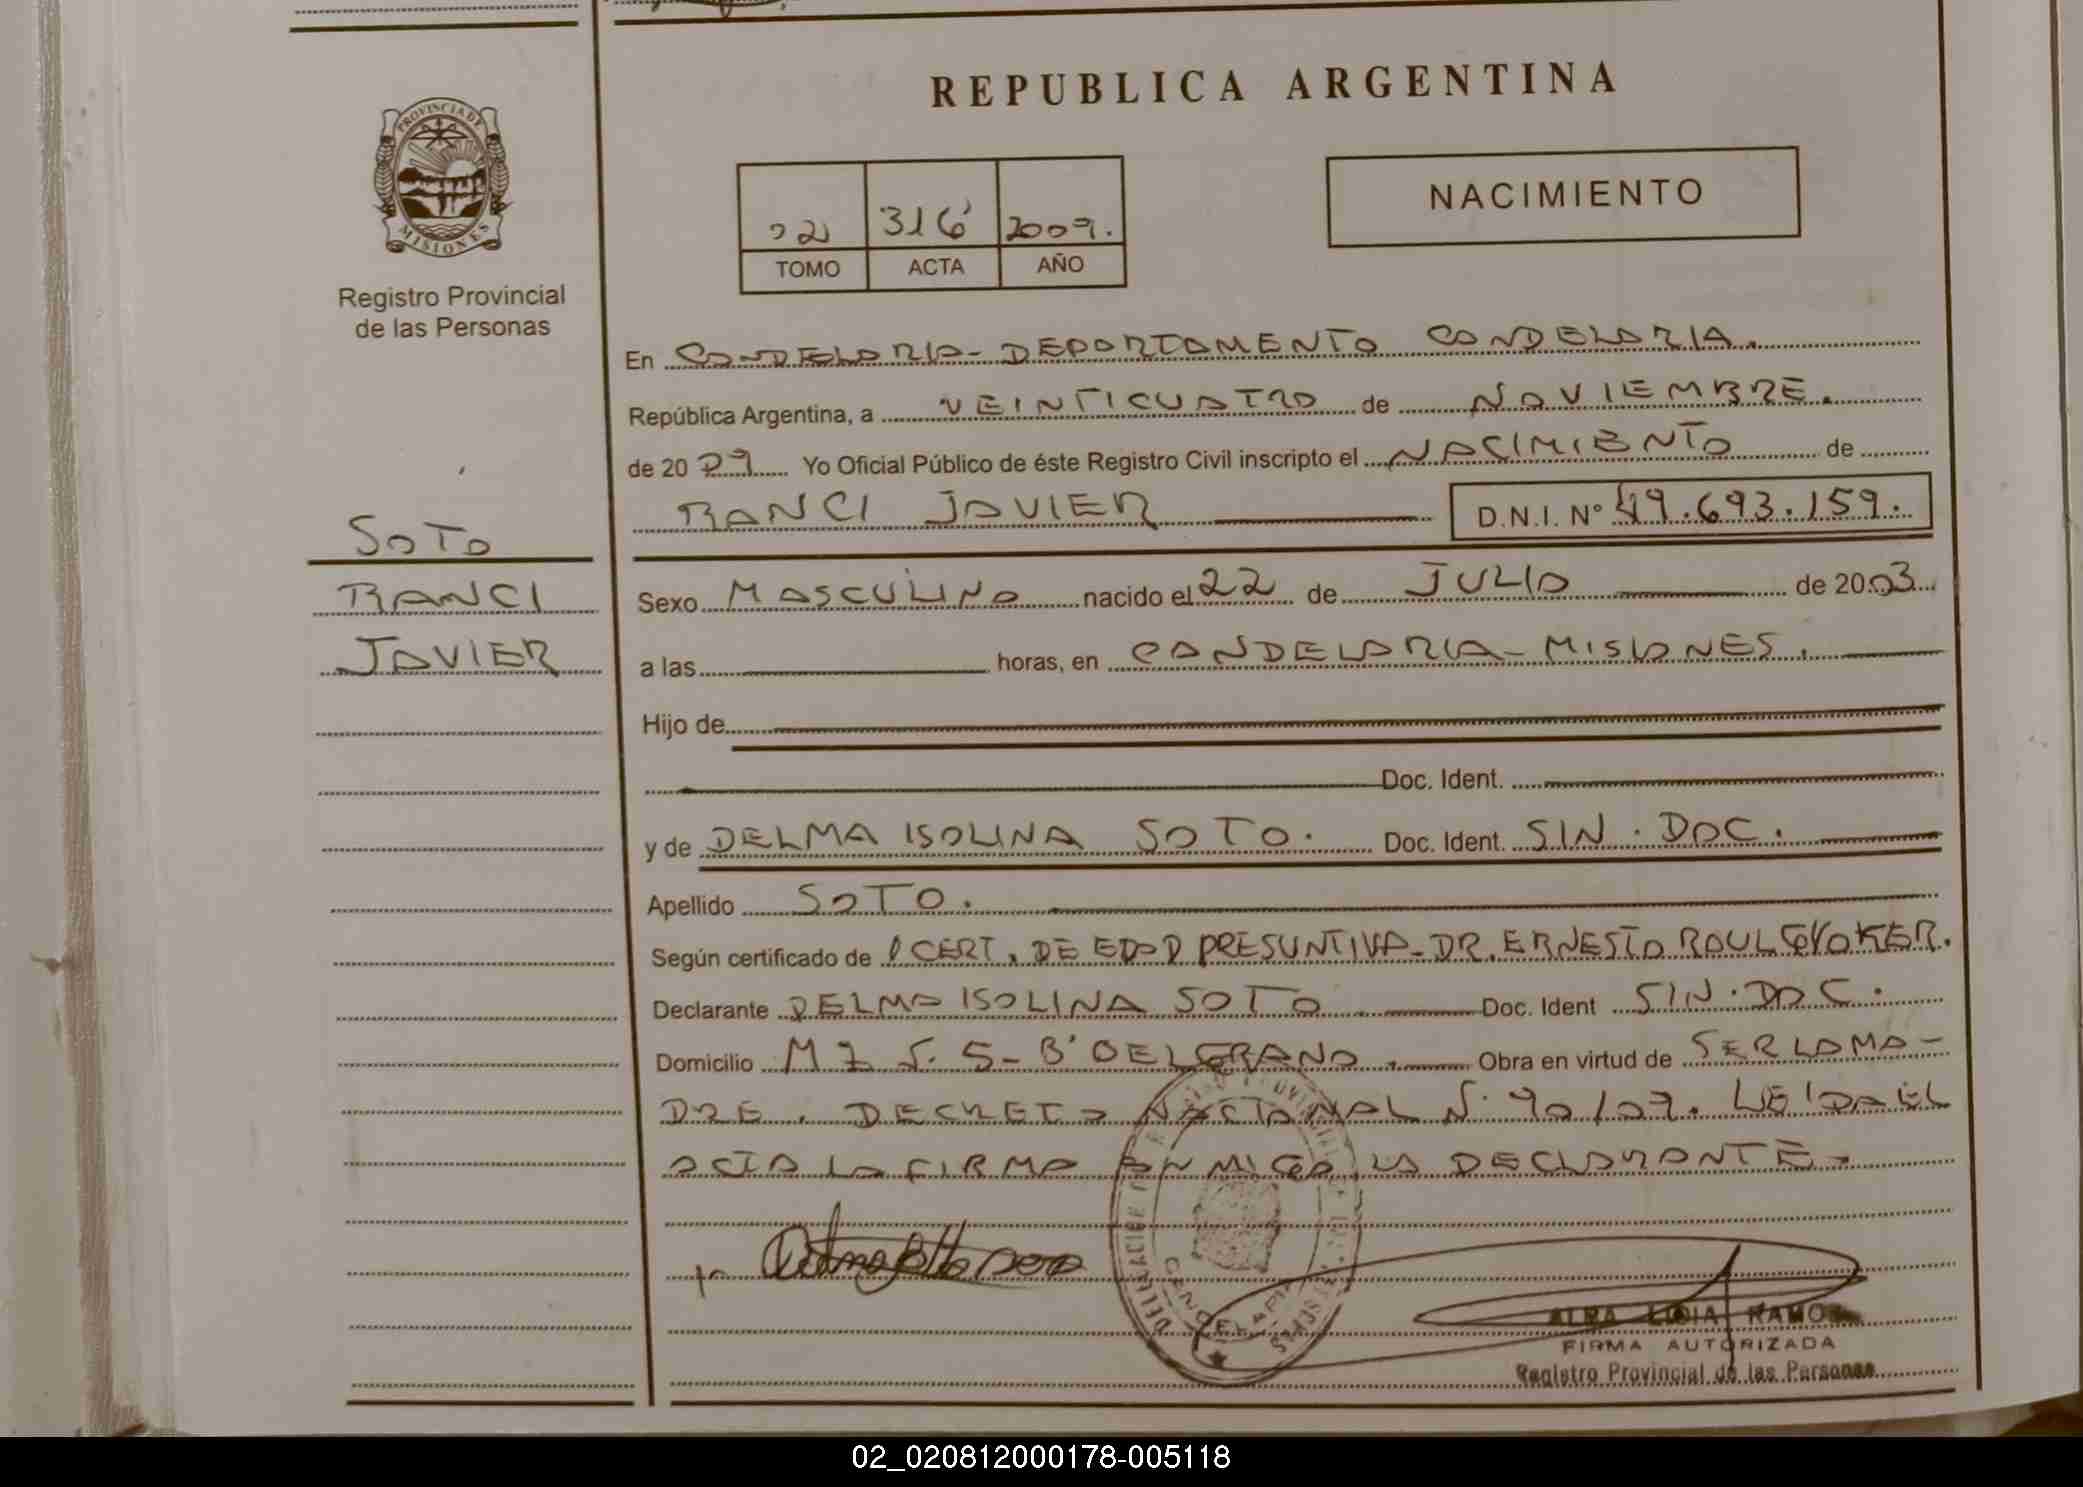 PROVINCIA DE
MISIONES
Registro Provincial
de las Personas
SOTO
RANCI
JAVIER
REPUBLICA ARGENTINA
02 316 2009.
TOMO ACTA AÑO
NACIMIENTO
En CANDELARIA - DEPARTAMENTO CANDELARIA.
República Argentina, a VEINTICUATRO de NOVIEMBRE.
de 20 09 Yo Oficial Público de éste Registro Civil inscripto el NACIMIENTO de
RANCI JAVIER D.N.I. N° 49.693.159.
Sexo MASCULINO nacido el 22 de JULIO de 2003
a las horas, en CANDELARIA - MISIONES.
Hijo de
Doc. Ident.
y de DELMA ISOLINA SOTO. Doc. Ident. SIN. DOC.
Apellido SOTO.
Según certificado de CERT. DE EDAD PRESUNTIVA - DR. ERNESTO RAUL
Declarante DELMA ISOLINA SOTO. Doc. Ident SIN. DOC.
Domicilio MZ S. 5 - B° BELGRANO. Obra en virtud de SER LA MA-
DRE. DECRETO NACIONAL N° 90/09. LEIDA EL
ACTA LA FIRMA CONMIGO LA DECLARANTE.
ALBA LIGIA RAMOS
FIRMA AUTORIZADA
Registro Provincial de las Personas
02_020812000178-005118